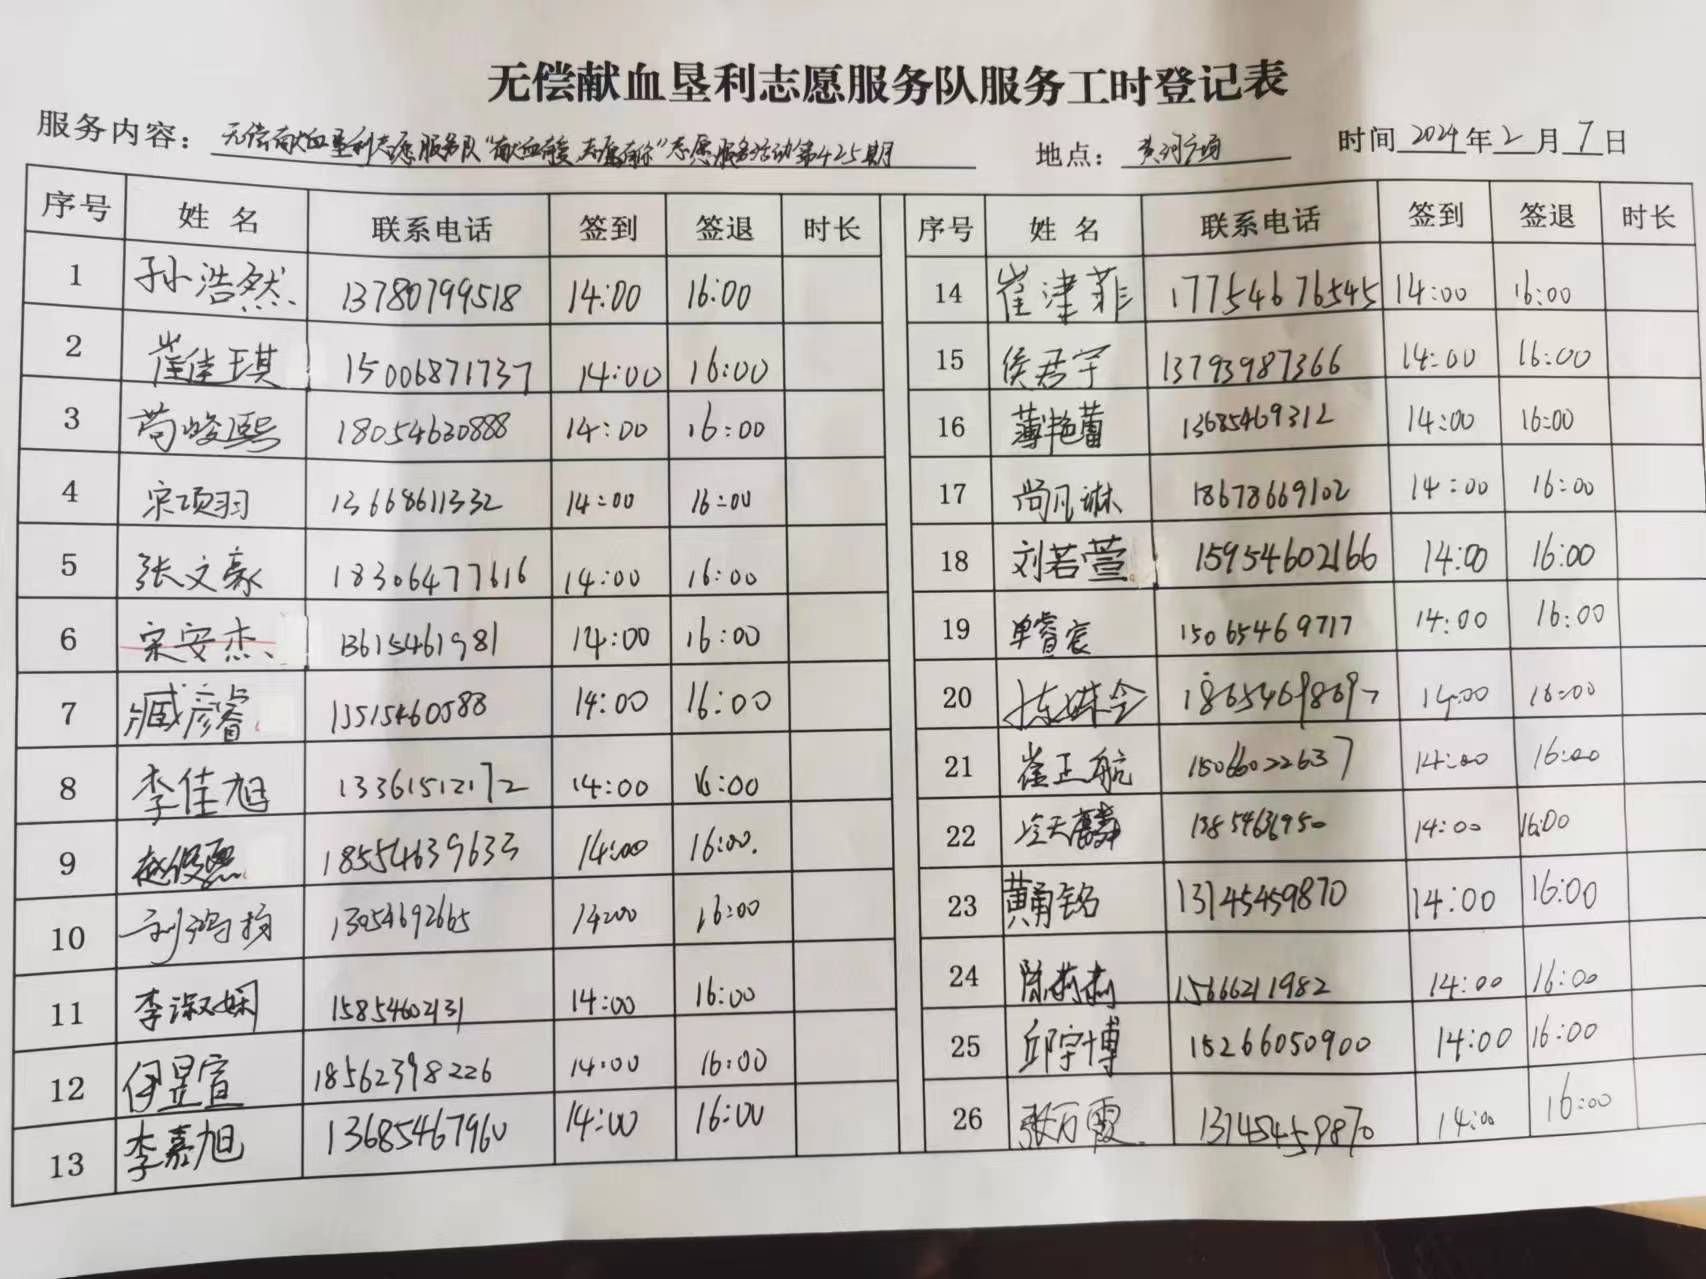 无偿献血垦利志愿服务队服务工时登记表
服务内容： 无偿献血垦利志愿服务队“献血有爱 志愿有你”志愿服务活动第425期 地点： 黄河广场 时间 2024年2月7日
序号 姓名 联系电话 签到 签退 时长 序号 姓名 联系电话 签到 签退 时长
1 孙浩然 13780799518 14:00 16:00 14 崔津菲 17754676545 14:00 16:00
2 崔佳琪 15006871737 14:00 16:00 15 侯君宇 13793987366 14:00 16:00
3 苟峻熙 18054630888 14:00 16:00 16 薄艳蕾 13685469312 14:00 16:00
4 宋项羽 13668611332 14:00 16:00 17 尚凡琳 18678669102 14:00 16:00
5 张文豪 18306477616 14:00 16:00 18 刘若萱 15954602166 14:00 16:00
6 宋安杰 13615461981 14:00 16:00 19 单睿宸 15065469717 14:00 16:00
7 臧彦睿 13515460588 14:00 16:00 20 14:00 16:00
8 李佳旭 13361512172 14:00 16:00 21 崔正航 15066022637 14:00 16:00
9 赵俊熙 18554639633 14:00 16:00 22 14:00 16:00
10 13054692665 14:00 16:00 23 黄甬铭 13145459870 14:00 16:00
11 李淑娴 15854602131 14:00 16:00 24 陈莉莉 15666211982 14:00 16:00
12 伊昱宣 18562398226 14:00 16:00 25 邱宇博 15266050900 14:00 16:00
13 李嘉旭 13685467960 14:00 16:00 26 张万霞 13145459870 14:00 16:00